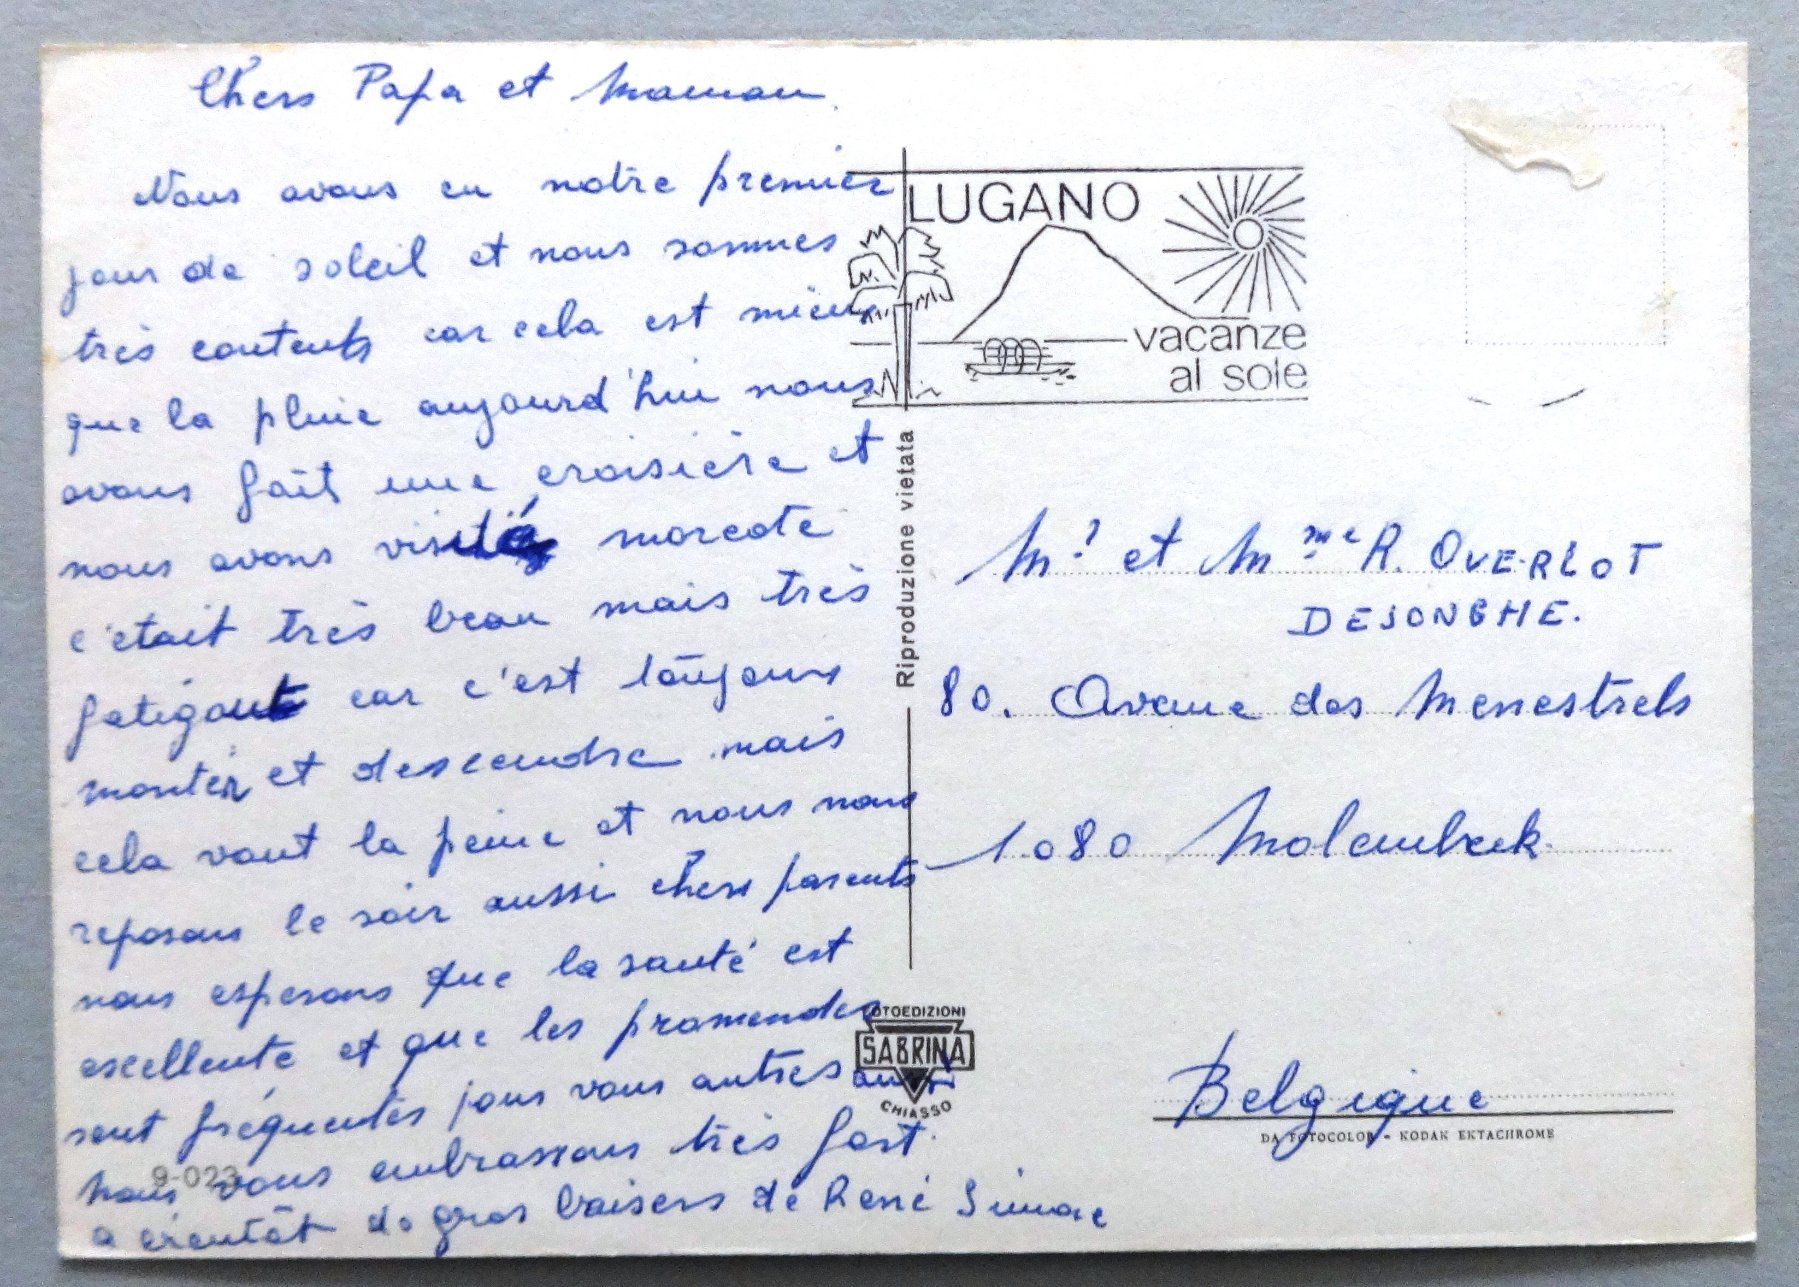 Chers Papa et Maman
Nous avons eu notre premier
jour de soleil et nous sommes
très contents car cela est mieux
que la pluie aujourd'hui nous
avons fait une croisière et
nous avons visité morcote
c'etait très beau mais très
fatigant car c'est toujours
monter et descendre mais
cela vaut la peine et nous nous
reposons le soir aussi chers parents
nous esperons que la santé est
excellente et que les promendes
sont fréquentes pour vous autres aussi
nous vous embrassons très fort.
a bientôt de gros baisers de René Simone
9-023
LUGANO
vacanze
al sole
Riproduzione vietata
FOTOEDIZIONI
SABRINA
CHIASSO
Mr et Mme R. OVERLOT
DEJONGHE.
80. Avenue des Menestrels
1080 Molenbeek
Belgique
DA FOTOCOLOR - KODAK EKTACHROME